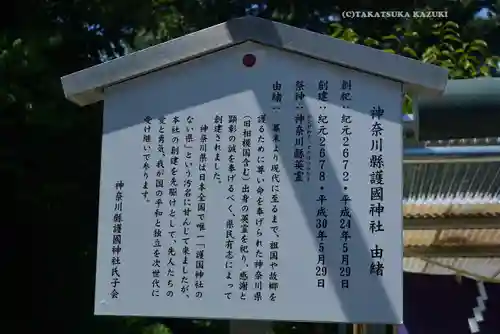 (C)TAKATSUKA KAZUKI
神奈川縣護國神社 由緒
創祀：紀元2672・平成24年5月29日
創建：紀元2678・平成30年5月29日
祭神：神奈川縣英霊
由緒：幕末より現代に至るまで、祖国や故郷を
護るために尊い命を奉げられた神奈川県
（旧相模国含む）出身の英霊を祀り、感謝と
顕彰の誠を奉げるべく、県民有志によって
創建されました。
神奈川県は日本全国で唯一「護国神社の
ない県」という汚名に甘んじて来ましたが、
本社の創建を先駆けとして、先人たちの
愛と勇気、我が国の平和と独立を次世代に
受け継いで参ります。
神奈川縣護國神社氏子会